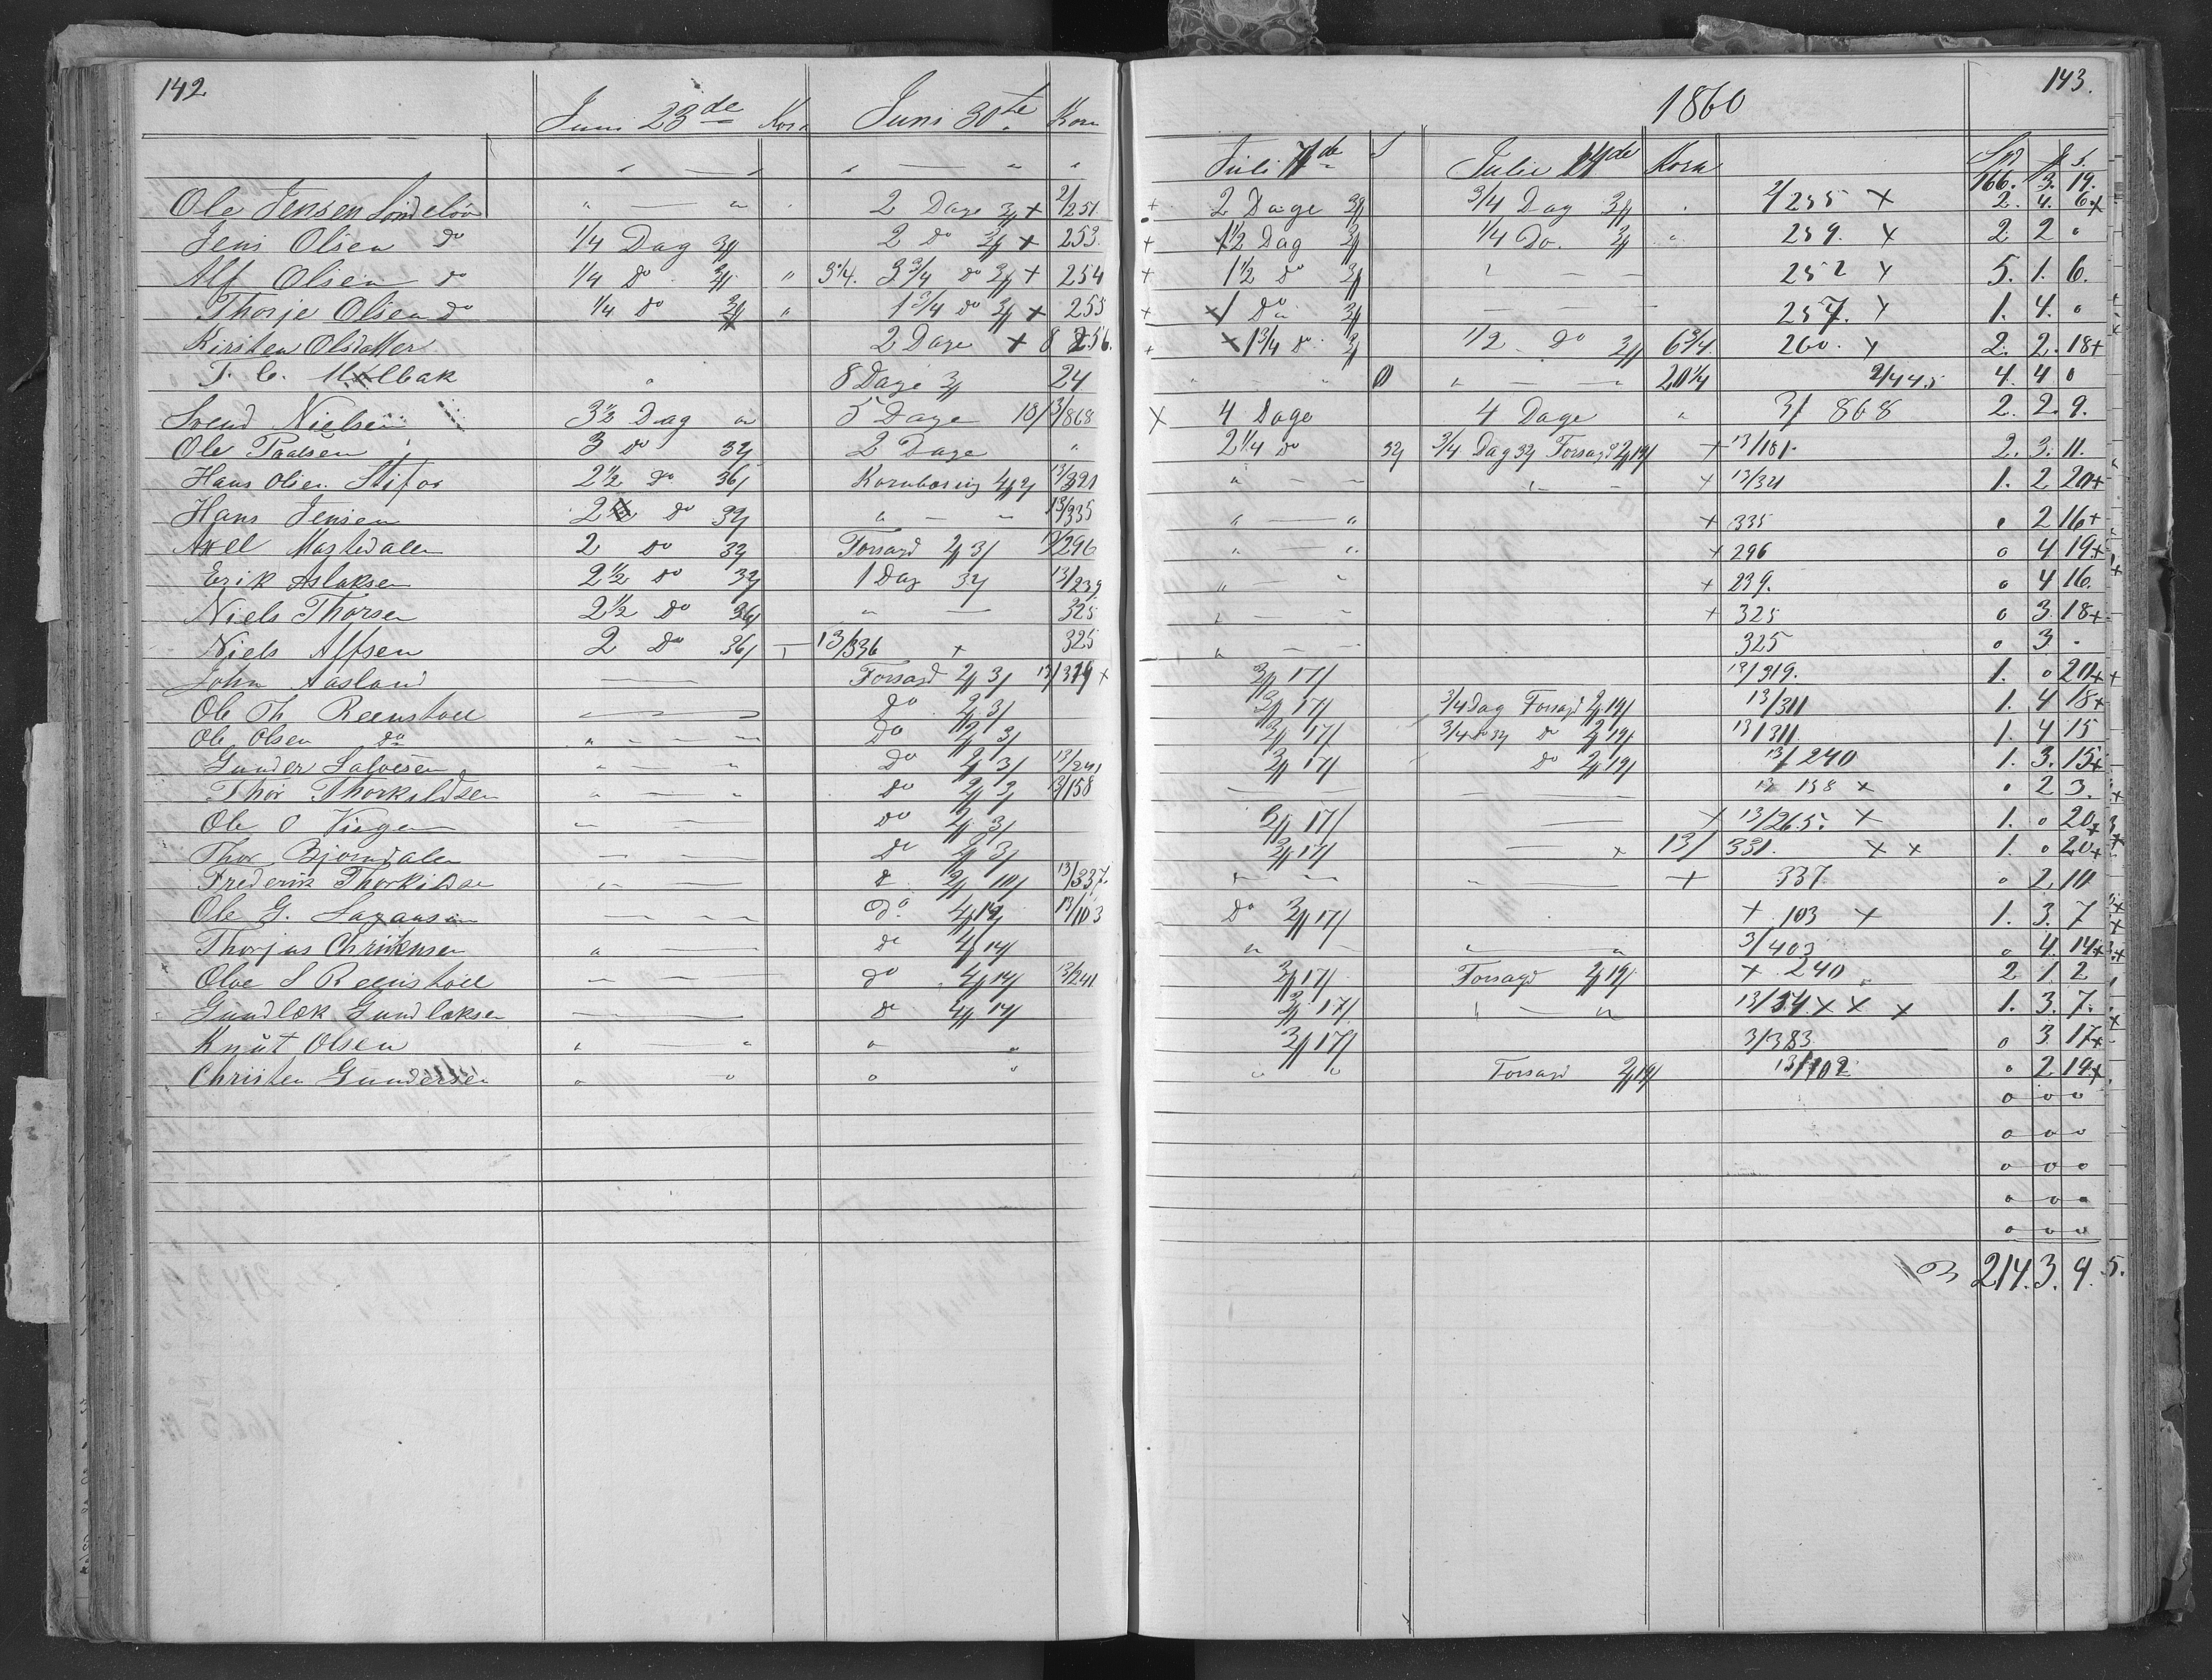 142
Juni 23de Korn Juni 30te Korn
" — " " — " "
Ole Jensen Sondeløv " — " " 2 Dage 3# + 2/251
Jens Olsen do 1/4 Dag 3# 2 Do 3# + 253.
Alf Olsen do 1/4 do 3# " 3 1/4. 3 3/4 do 3# + 254
Thorje Olsen do 1/4 do 3# " 1 3/4 do 3# + 255
Kirsten Olsdatter 2 Dage + 8 256.
T. C. Holbak " 8 Dage 3# 24
Svend Nielsen 3 1/2 Dag " 5 Dage 18/ 3/868
Ole Paalsen 3 do 32/ 2 Dage "
Hans Olsen Stifos 2 1/2 do 36/ Kornbæring 4# 2/ 13/321
Hans Jensen 2 do 32/ " — " 13/335
Axel Mastedalen 2 do 32/ Forsagd 2# 3/ 13/296
Erik Aslaksen 2 1/2 do 32/ 1 Dag 32/ 13/239
Niels Thorsen 2 1/2 do 36/ " — 325
Niels Alfsen 2 Do 36/ 13/336 + 325
John Aasland — Forsagd 2# 3/ 13/319 +
Ole Th Reenstoll " — " do 2# 3/
Ole Olsen do " — " Do 2# 3/
Gunder Salvesen " — " Do 2# 3/ 13/241
Thor Thorkildsen " — " do 2# 3/ 13/158
Ole O Vinger " — Do 2# 3/
Thor Bjorndalen " — do 2# 3/
Frederik Thorkildse " — d 2# 10/ 13/337.
Ole G. — do 4# 19/ 13/103
Thorjus Christensen " — do 4# 14/
Oloe S Reenstoll " — do 4# 14/ 13/241
Gundlek Gundleksen — do 4# 14/
Knut Olsen " — " " "
Christen Gundersen " " " "
143.
1860
Juli 7de S Julie 14de Korn Spd # S.
166. 3. 19.
+ 2 Dage 3# 3/4 Dag 3# " 2/255 X 2. 4. 6 +
+ 1 1/2 Dag 3# 1/4 Do. 3# " 259. X 2 2 0
+ 1 1/2 do 3# " — 252 X 5. 1. 6.
+ 1 Do 3# — 257. X 1. 4. 0
+ 1 3/4 do 3# 1/2 do 3# 6 3/4. 260. X 2. 2. 18 +
" 0 " — " 20 1/4 2/445 4. 4 0
X 4 Dage 4 Dage " 3/ 868 2. 2. 9.
2 1/4 do 32/ 3/4 Dag 32/ Forsagd 2# 19/ + 13/181. 2. 3. 11.
" — " " — + 13/321 1. 2 20 +
" — " + 335 0 2 16 +
" — " + 296 0 4 19 +
" — " + 239. 0 4 16.
" — " + 325 0 3. 18 +
" — 325 0 3. -
3# 17/ 13/319. 1. 0 20 +
3# 17/ 3/4 Dag Forsagd 2# 19/ 13/311 1. 4 18 +
3# 17/ 3/4 do 32/ do 2# 19/ 13/311. 1. 4 15
3# 17/ do 2# 19/ 13/240 1. 3. 15 +
— — 13 158 + 0 2 3.
3# 17/ — + 13/265. X 1. 0 20 +
3# 17/ — + 13/ 331. X X 1. 0 20 +
" — " " — + 337 0 2. 10
Do 3# 17/ + 103 X 1. 3. 7
" — " " 3/403 0 4. 14 +
3# 17/ Forsagd 2# 19/ + 240 2 1 2
3# 17/ " — " 13/34. X X X 1. 3. 7.
3# 17/ 3/383 0 3. 17 +
" " Forsagd 2# 19/ 13/102 0 2 19 +
0 0 0
0 0 0
0 0 0
0 0 0
0 0 0
214. 3. 9. 5.